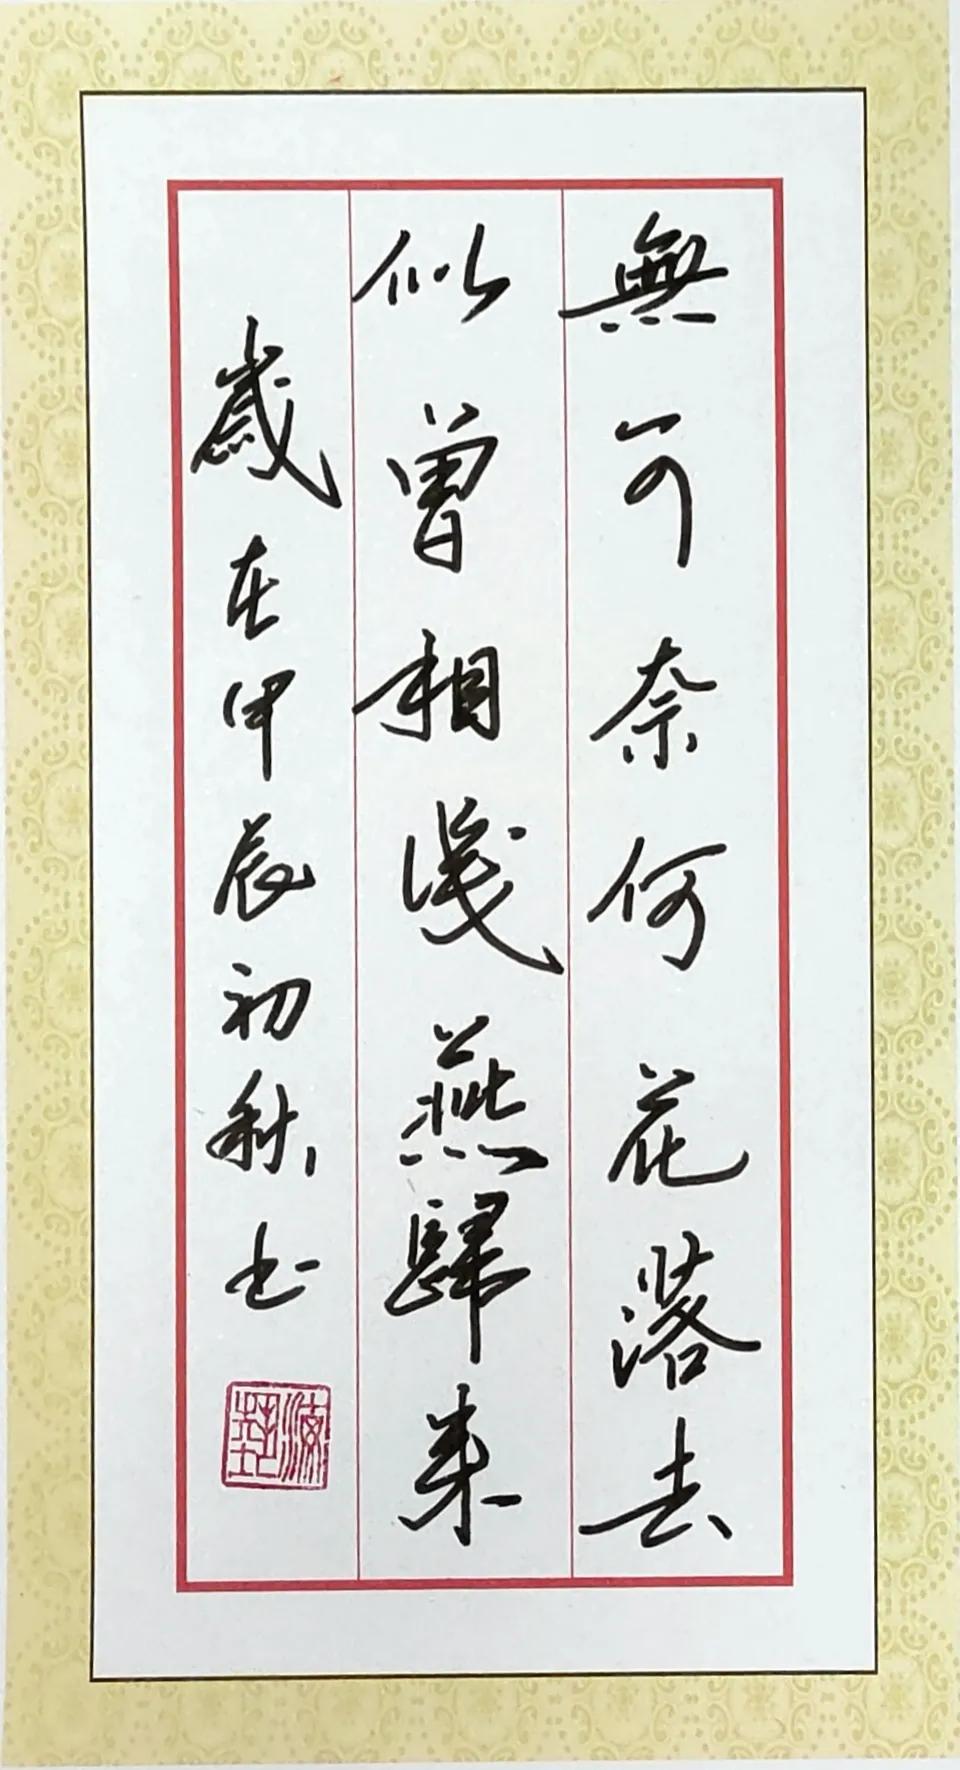 無可奈何花落去
似曾相識燕歸來
歲在甲辰初秋書